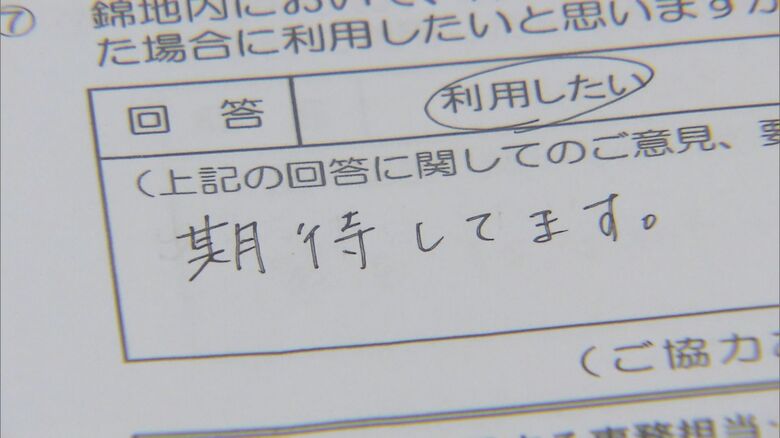 ⑦ 錦地内において、
た場合に利用したいと思いますか
回 答 利用したい
(上記の回答に関してのご意見、要
期待してます。
(ご協力
る事務担当